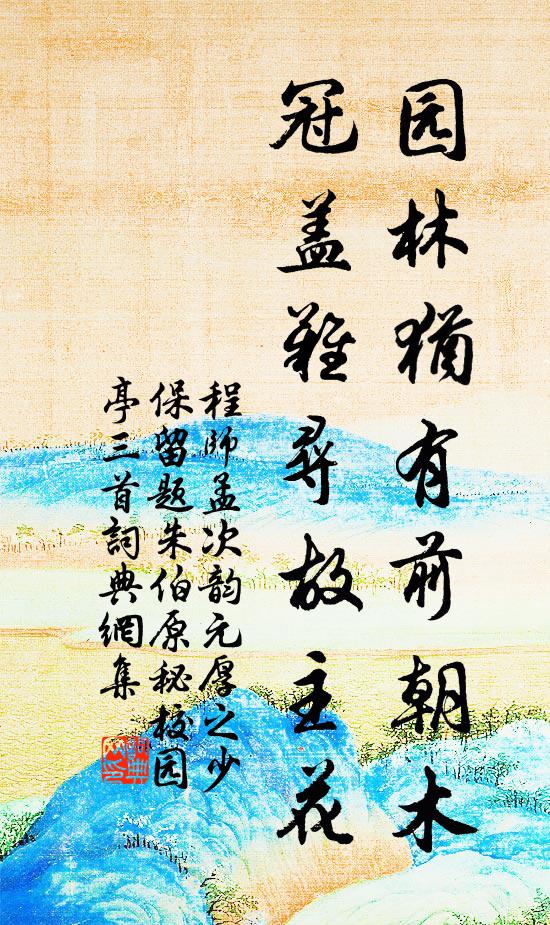 园林犹有前朝木
冠盖难寻故主花
程師孟次韵元厚之少
保留題朱伯原秘校园
亭三首詞典網集